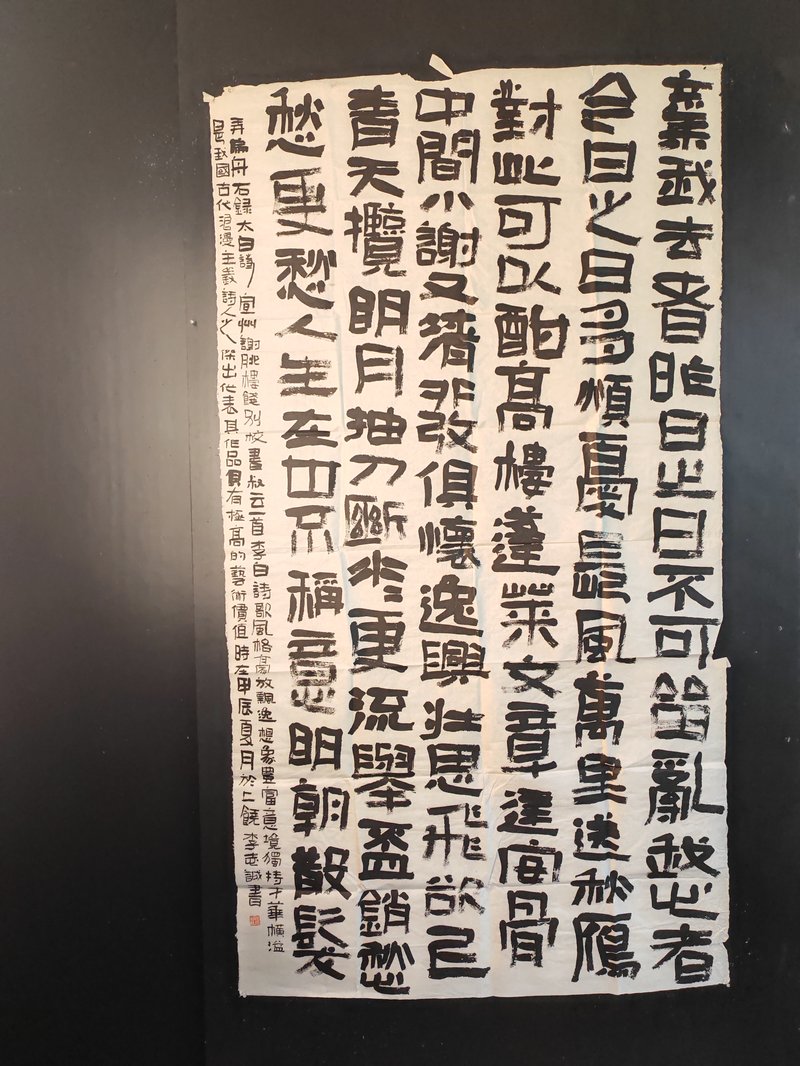 棄我去者昨日之日不可留亂我心者
今日之日多煩憂長風萬里送秋雁
對此可以酣高樓蓬萊文章建安骨
中間小謝又清發俱懷逸興壯思飛欲上
青天攬明月抽刀斷水更流舉盃銷愁
愁更愁人生在世不稱意明朝散髮
弄扁舟 右錄太白詩宣州謝朓樓餞別校書叔云一首李白詩歌風格豪放飄逸想象豐富意境獨特才華橫溢
是我國古代浪漫主義詩人之傑出代表其作品具有極高的藝術價值時在甲辰夏月於上饒李志誠書